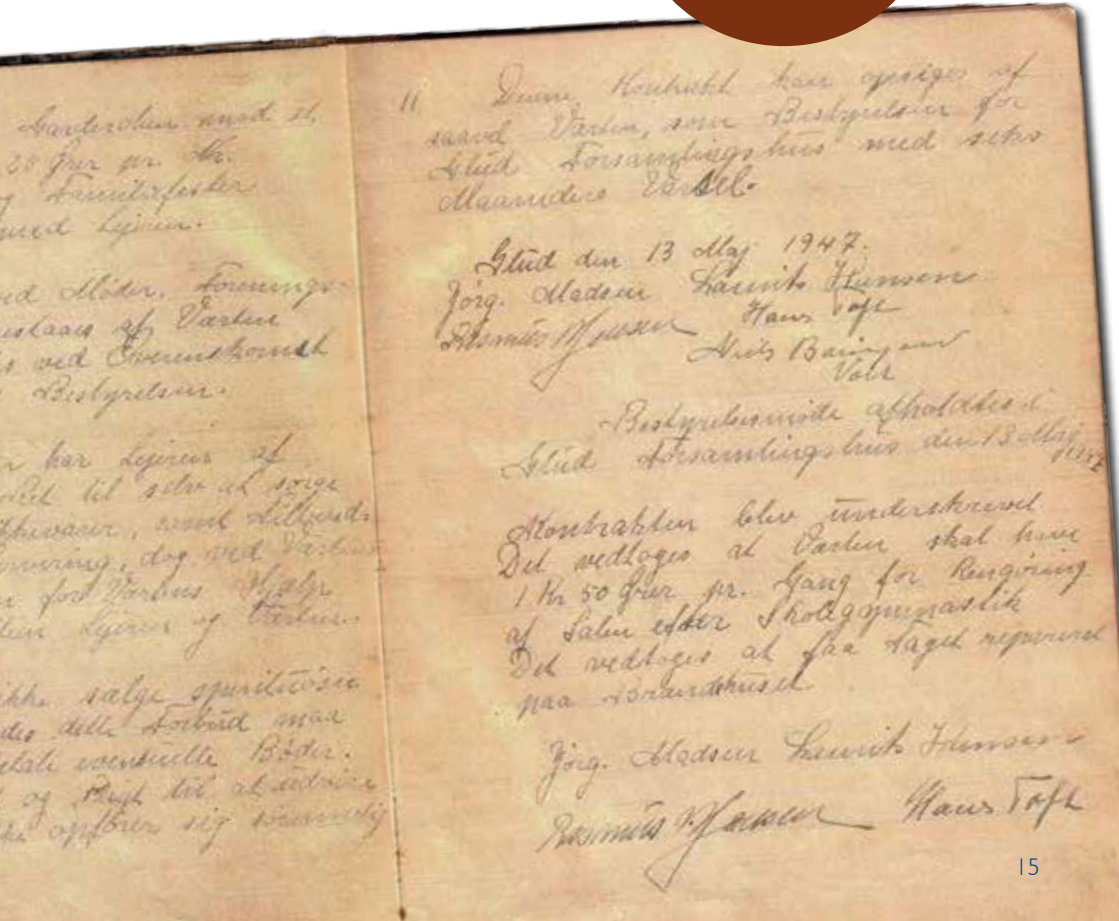 Garderoben mod et
25 Ører pr. Nr.
Familiefester
med Lejeren.
ved Møder, Forenings-
af Værten
ved Overenskomst
Bestyrelsen.
har Lejeren af
til selv at sørge
samt
dog ved Værtens
for Værtens Hjælp
Lejeren og Værten.
ikke sælge spirituøse
dette Forbud maa
eventuelle Bøder.
og Pligt til at udvise
opfører sig sømmelig
11 Denne Kontrakt kan opsiges af
saavel Værten, som Bestyrelsen for
Glud Forsamlingshus med seks
Maaneders Varsel.
Glud den 13 Maj 1947.
Jörg. Madsen Laurits Hansen
Rasmus Jensen Hans Toft
Niels
Vært
Bestyrelsesmöde afholdtes i
Glud Forsamlingshus den 13 Maj 1947
Kontrakten blev underskrevet
Det vedtoges at Værten skal have
1 Kr 50 Ører pr. Gang for Rengöring
af Salen efter Skolegymnastik
Det vedtoges at faa Taget repareret
paa
Jörg. Madsen Laurits Hansen
Rasmus Jensen Hans Toft
15